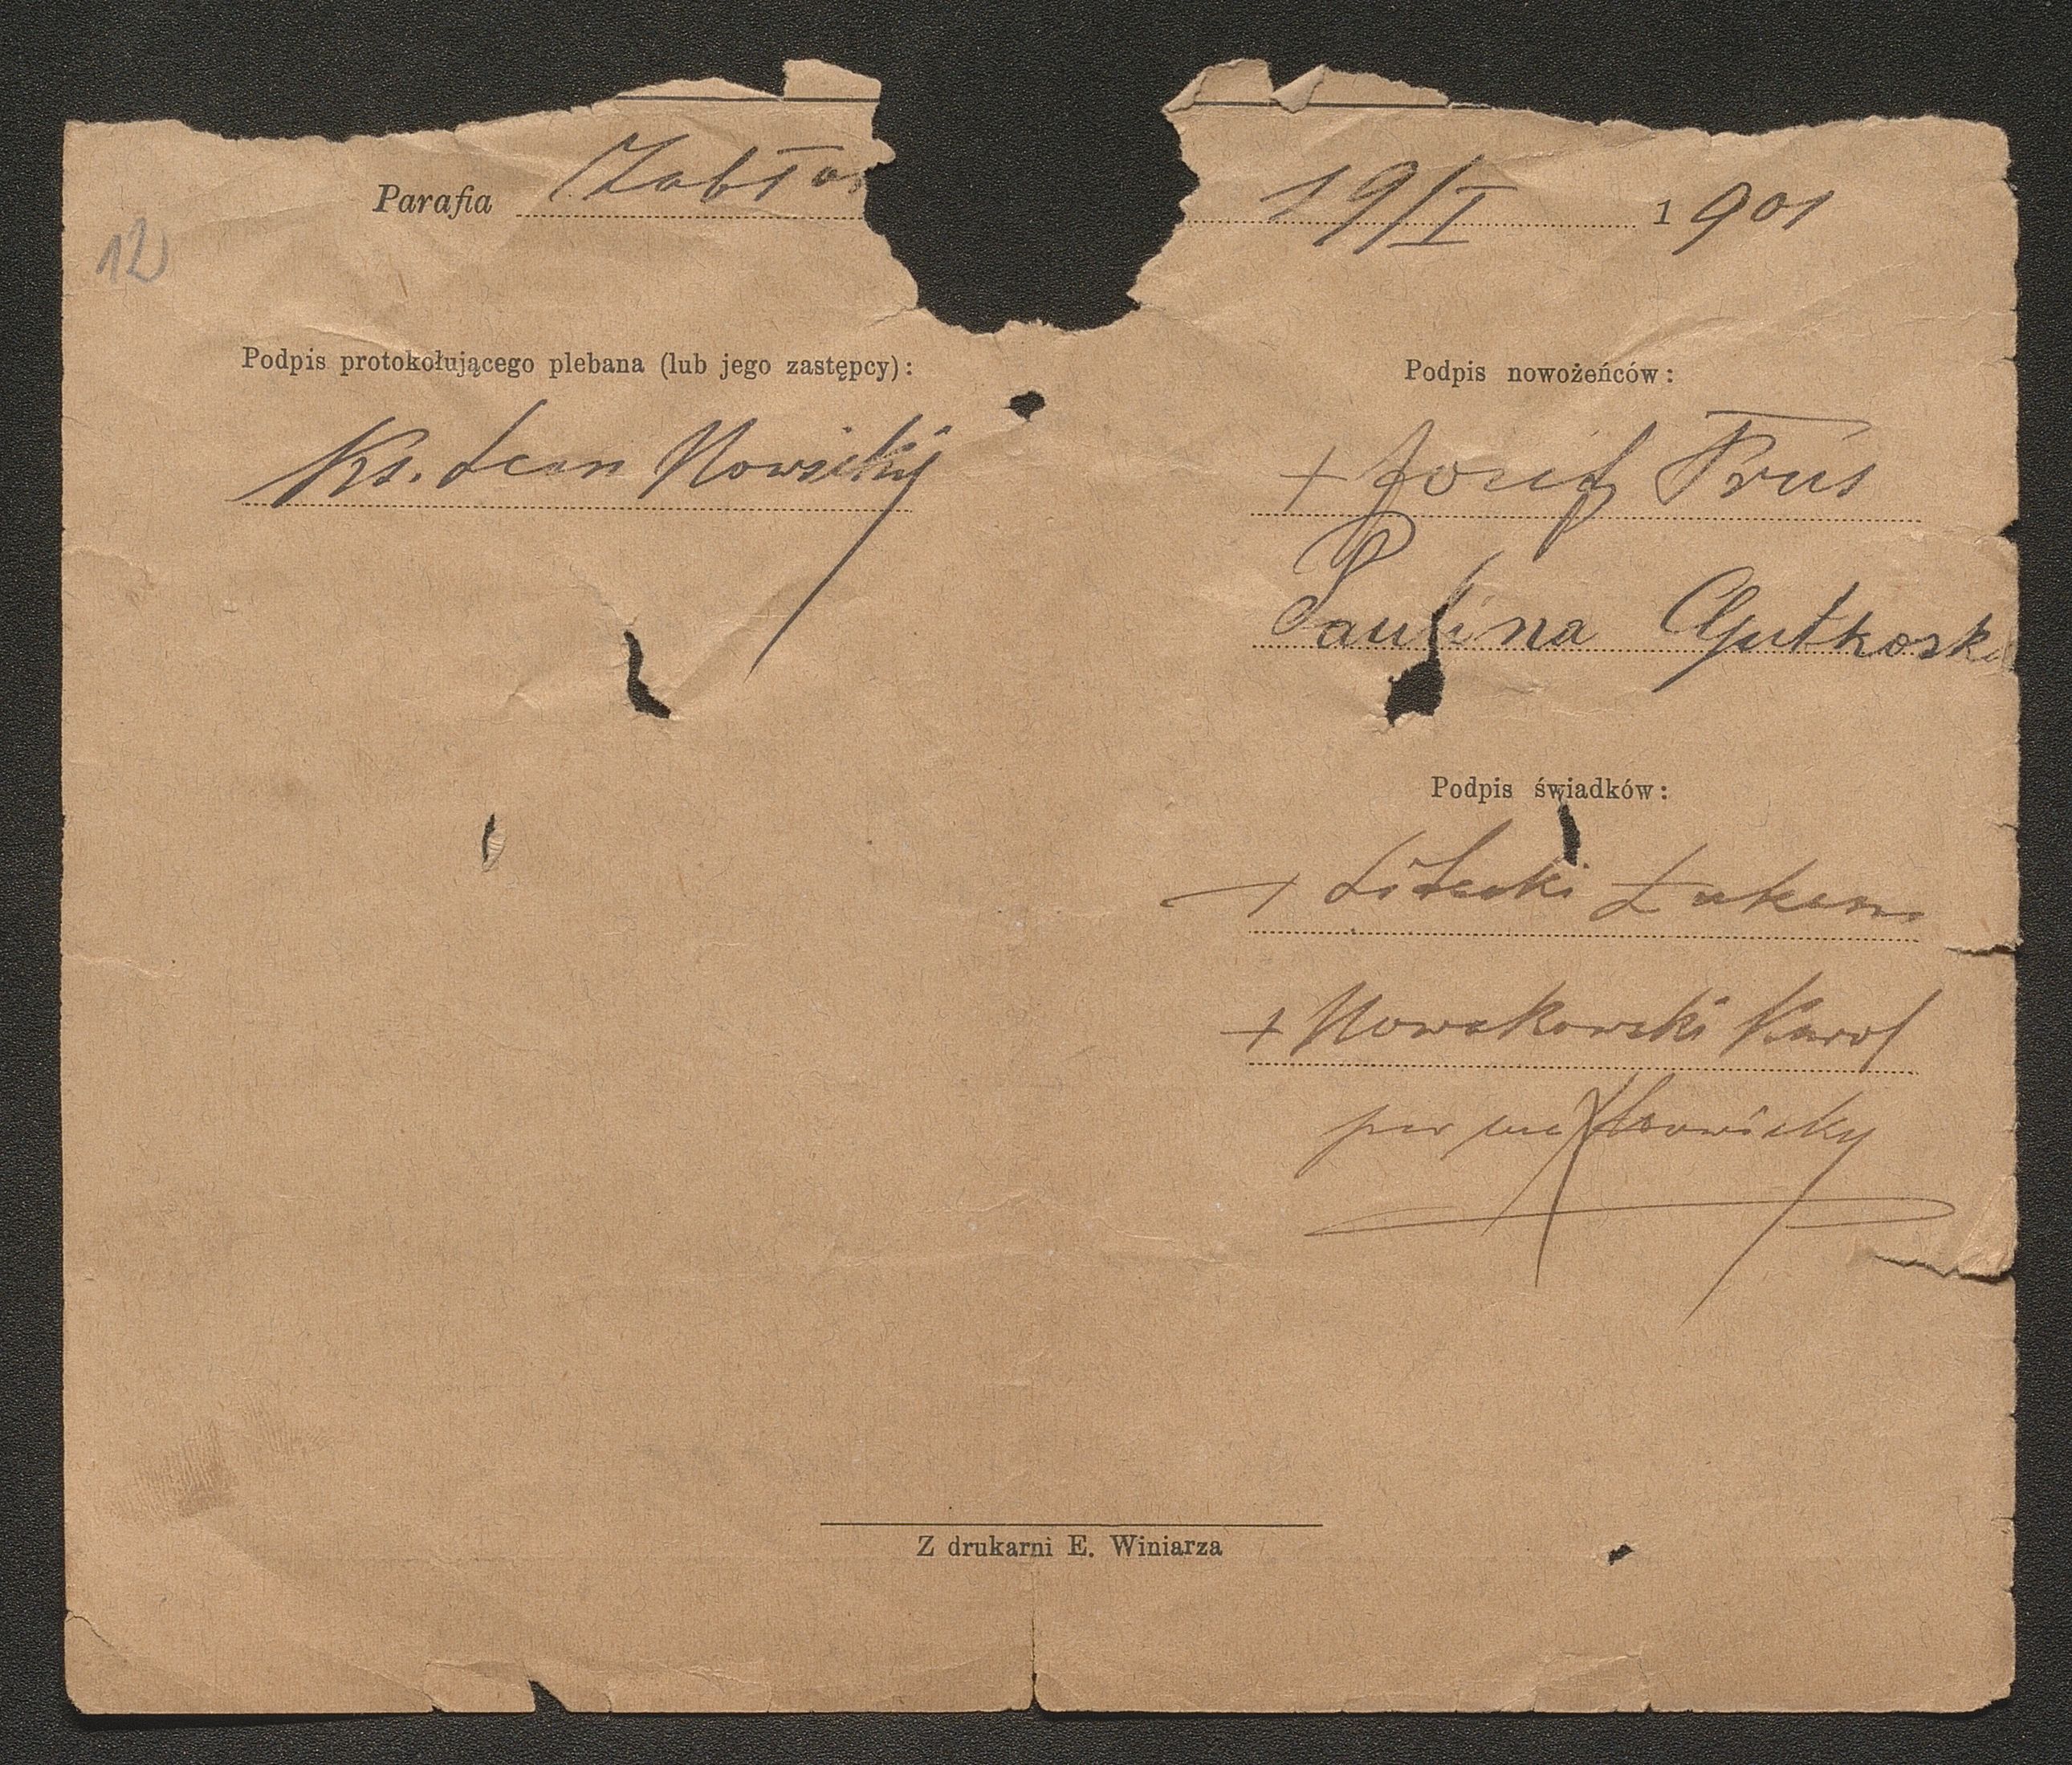 Parafia Zabło 19/I 1901
12
Podpis protokołującego plebana (lub jego zastępcy):
Podpis nowożeńców:
Ks. Leon Nowicky
+ Jozef Prus
Paulina Gutkoska
Podpis świadków:
+ Litecki Łukasz
+ Nowakowski Karol
per me Nowicky
Z drukarni E. Winiarza